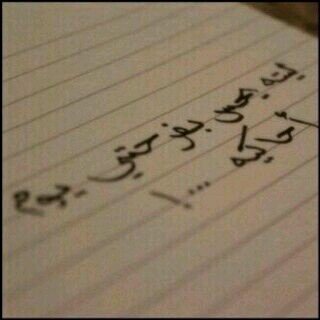 ليته يحس بفرحتي يوم
أحاكيه ...!